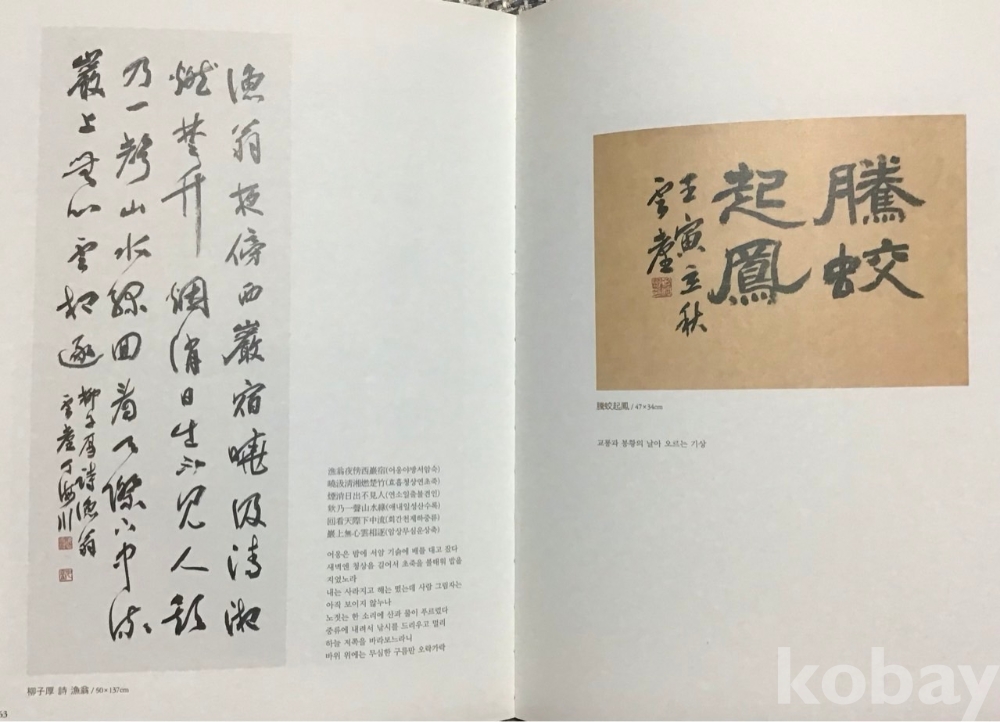 漁翁夜傍西巖宿曉汲清湘
燃楚竹烟消日出不見人欸
乃一聲山水綠回看天際下中流
巖上無心雲相逐
柳子厚詩漁翁
漁翁夜傍西巖宿(어옹야방서암숙)
曉汲清湘燃楚竹(효흡청상연초죽)
煙消日出不見人(연소일출불견인)
欸乃一聲山水綠(애내일성산수록)
回看天際下中流(회간천제하중류)
巖上無心雲相逐(암상무심운상축)
어옹은 밤에 서암 기슭에 배를 대고 잔다
새벽엔 청상을 길어서 초죽을 불태워 밥을
지었노라
내는 사라지고 해는 떴는데 사람 그림자는
아직 보이지 않누나
노젓는 한 소리에 산과 물이 푸르렀다
중류에 내려서 낚시를 드리우고 멀리
하늘 저쪽을 바라보느라니
바위 위에는 무심한 구름만 오락가락
柳子厚 詩 漁翁 / 50×137cm
63
騰蛟
起鳳
壬寅立秋
雲臺
騰蛟起鳳 / 47×34cm
교룡과 봉황의 날아 오르는 기상
kobay